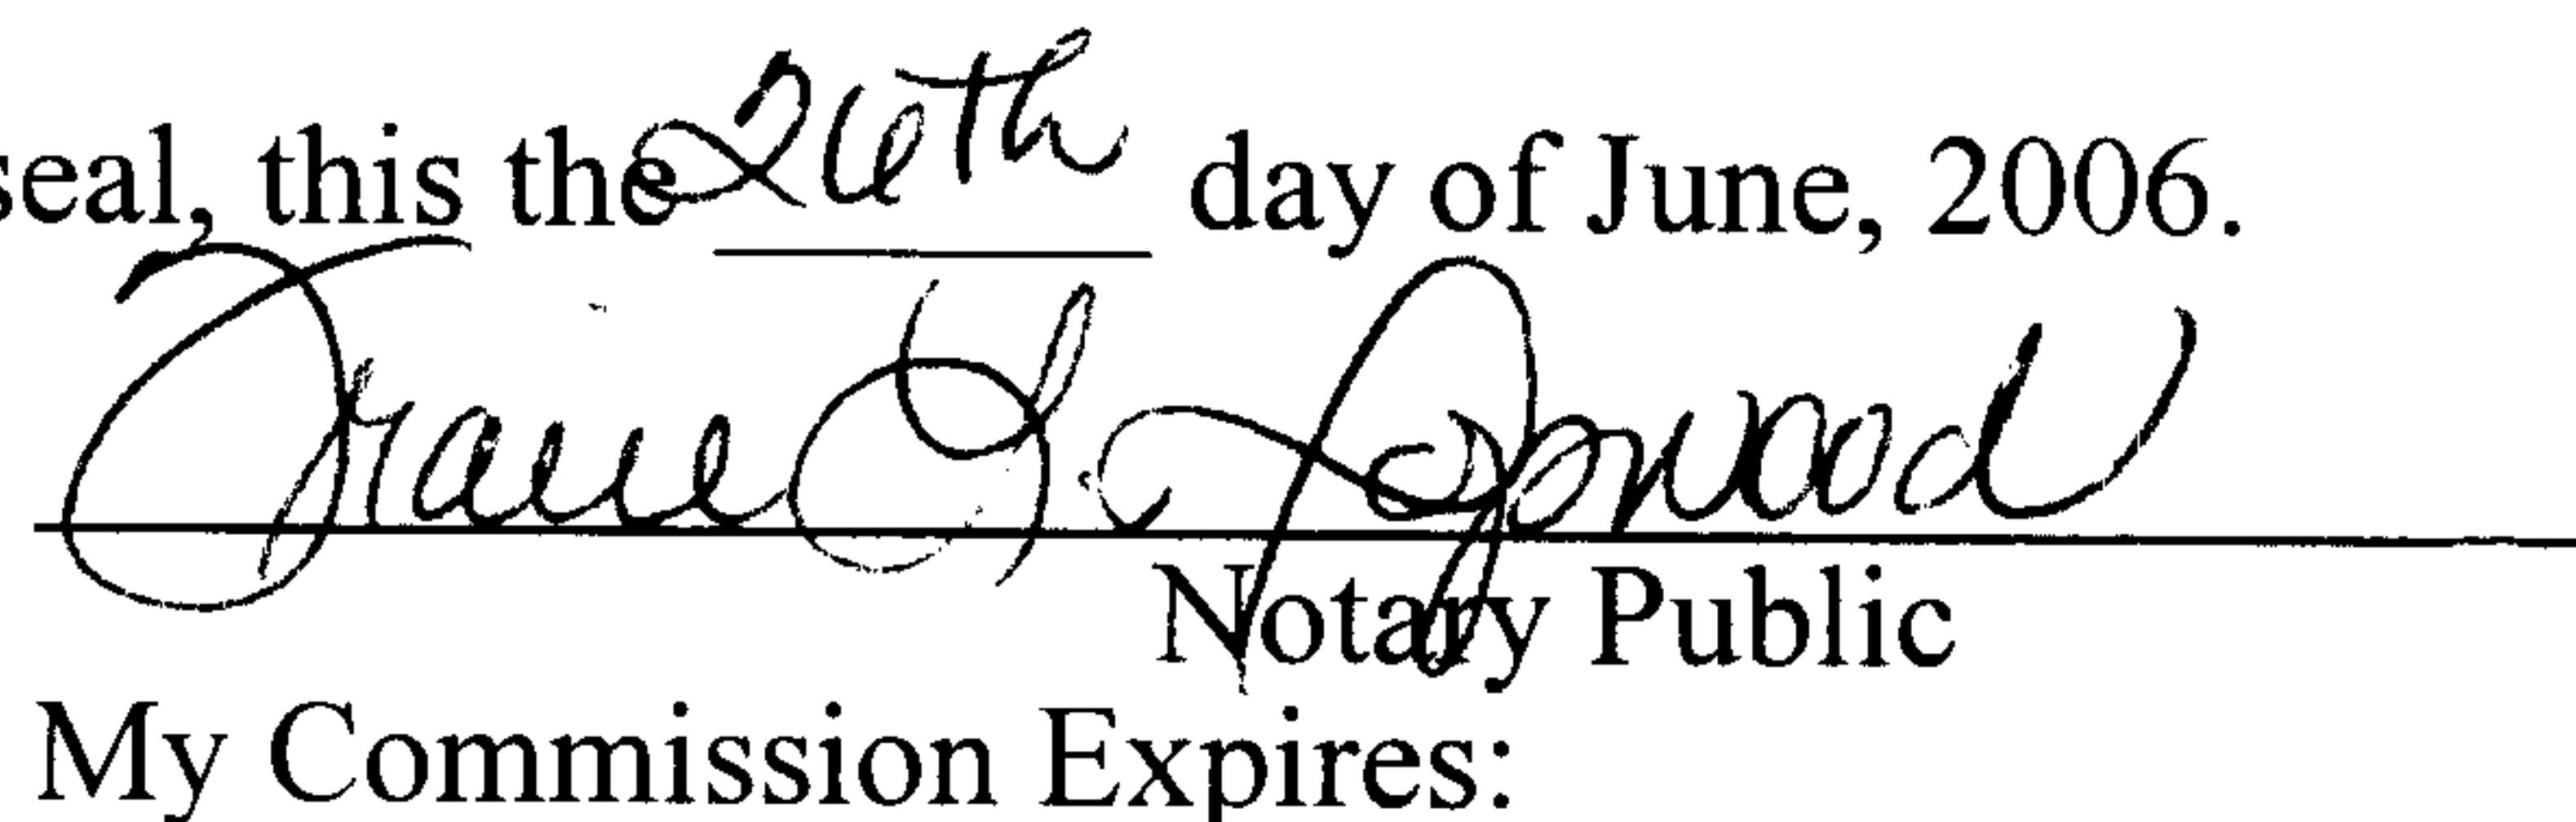 seal, this the 26th day of June, 2006.
Notary Public
My Commission Expires: